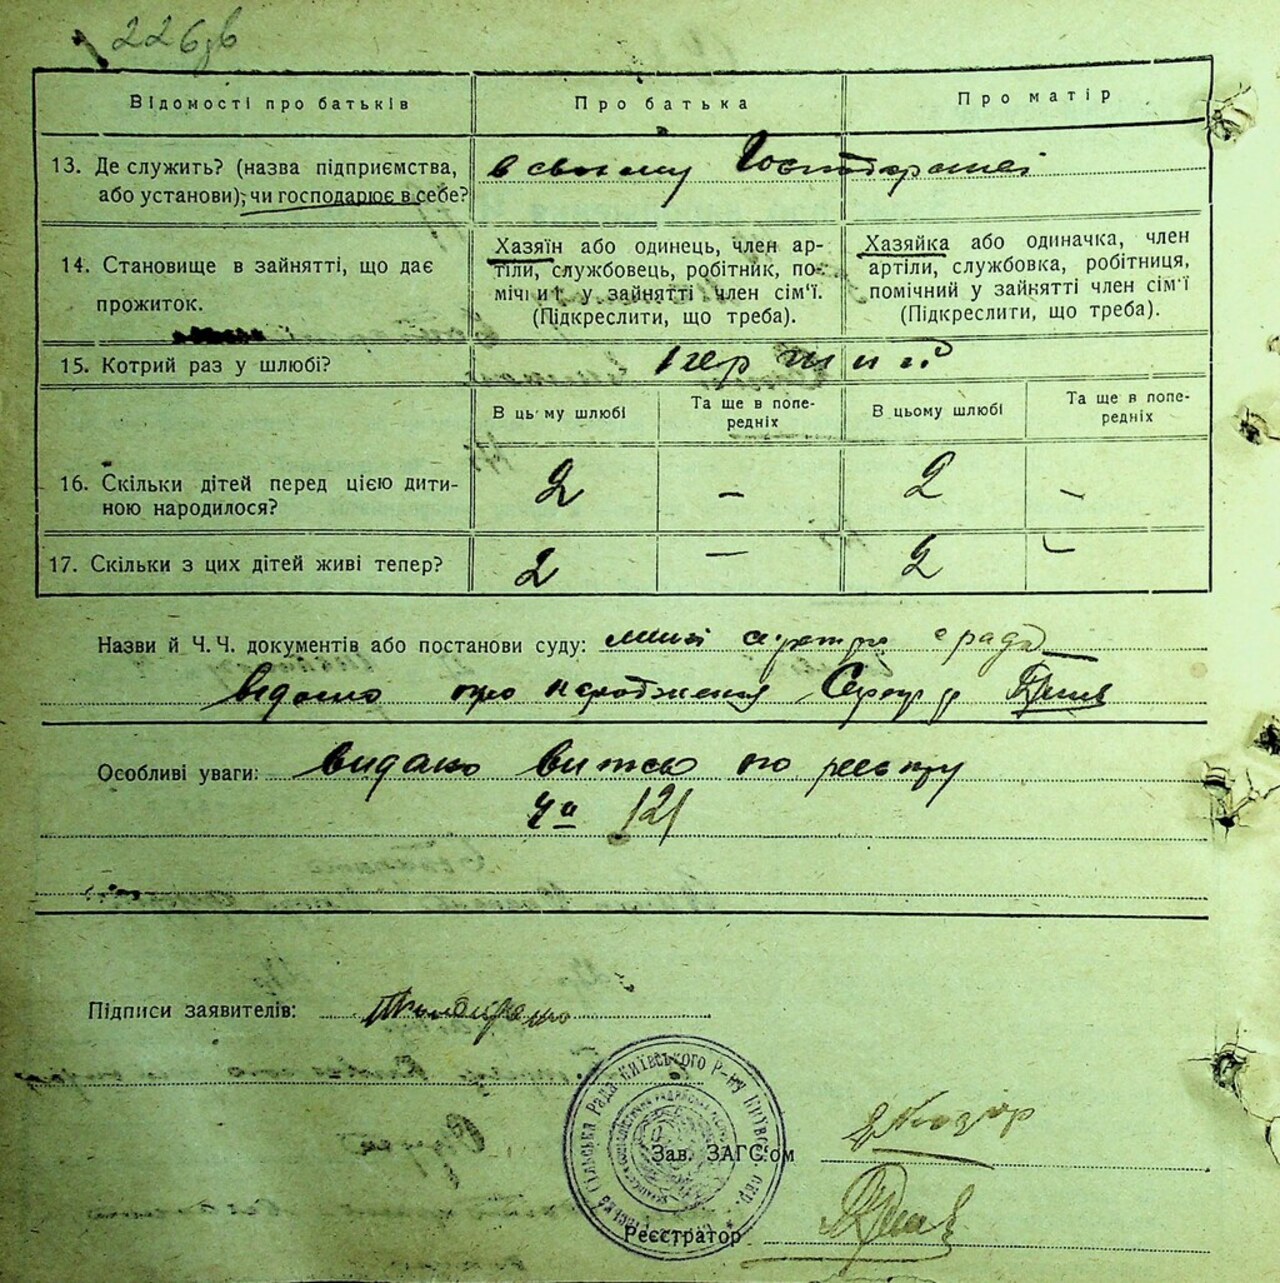 226зв
Відомості про батьків
Про батька
Про матір
13. Де служить? (назва підприємства,
або установи); чи господарює в себе?
в своєму Господарстві
14. Становище в зайнятті, що дає
прожиток.
Хазяїн або одинець, член ар-
тіли, службовець, робітник, по-
мічний у зайнятті член сім'ї.
(Підкреслити, що треба).
Хазяйка або одиначка, член
артіли, службовка, робітниця,
помічний у зайнятті член сім'ї
(Підкреслити, що треба).
15. Котрий раз у шлюбі?
перший
В цьому шлюбі
Та ще в попе-
редніх
В цьому шлюбі
Та ще в попе-
редніх
16. Скільки дітей перед цією дити-
ною народилося?
2 – 2 –
17. Скільки з цих дітей живі тепер?
2 – 2 –
Назви й Ч. Ч. документів або постанови суду:
про народження
Особливі уваги: видано витяг по реєстру
ч а 121
Підписи заявників:
СІЛЬСЬКА РАДА КИЇВСЬКОГО Р-НУ КИЇВС. ОКР.
Зав. ЗАГС'ом
Реєстратор